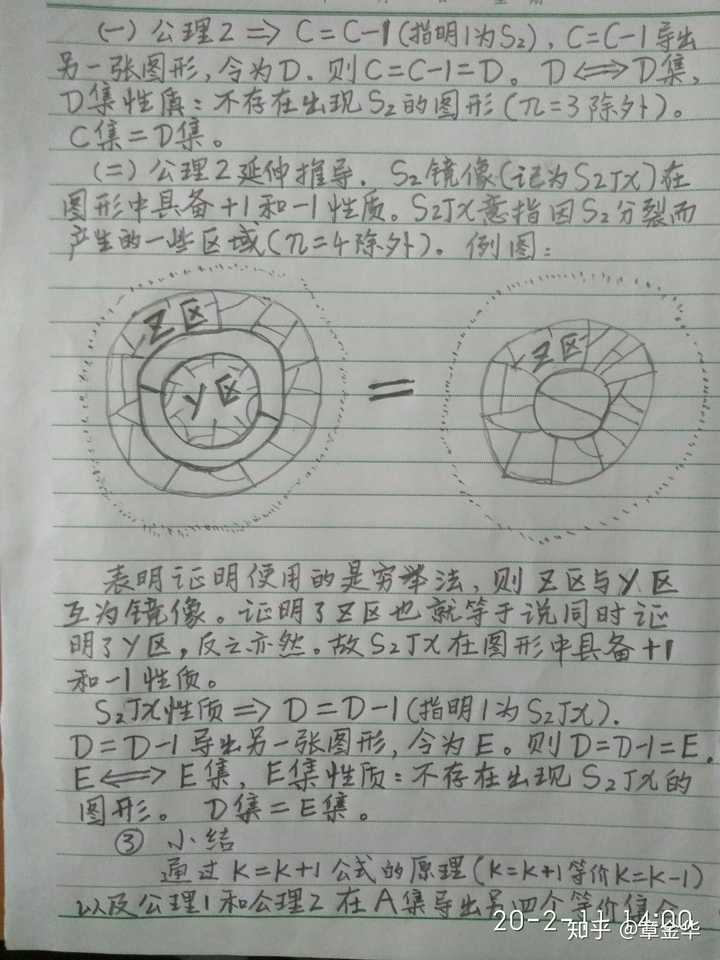 (一) 公理2 => C=C-1(指明1为S₂), C=C-1导出
另一张图形,令为D. 则C=C-1=D。D<=>D集,
D集性质:不存在出现S₂的图形(π=3除外)。
C集=D集。
(二) 公理2延伸推导. S₂镜像(记为S₂Jx)在
图形中具备+1和-1性质。S₂Jx意指因S₂分裂而
产生的一些区域(π=4除外)。例图:
Z区
Y区
=
Z区
表明证明使用的是穷举法,则Z区与Y区
互为镜像。证明了Z区也就等于说同时证
明了Y区,反之亦然。故S₂Jx在图形中具备+1
和-1性质。
S₂Jx性质=>D=D-1(指明1为S₂Jx).
D=D-1导出另一张图形,令为E。则D=D-1=E.
E<=>E集,E集性质:不存在出现S₂Jx的
图形。D集=E集。
③ 小结
通过K=K+1公式的原理(K=K+1等价K=K-1)
以及公理1和公理2在A集导出另四个等价集合
20-2-11 14:00
知乎 @章金华